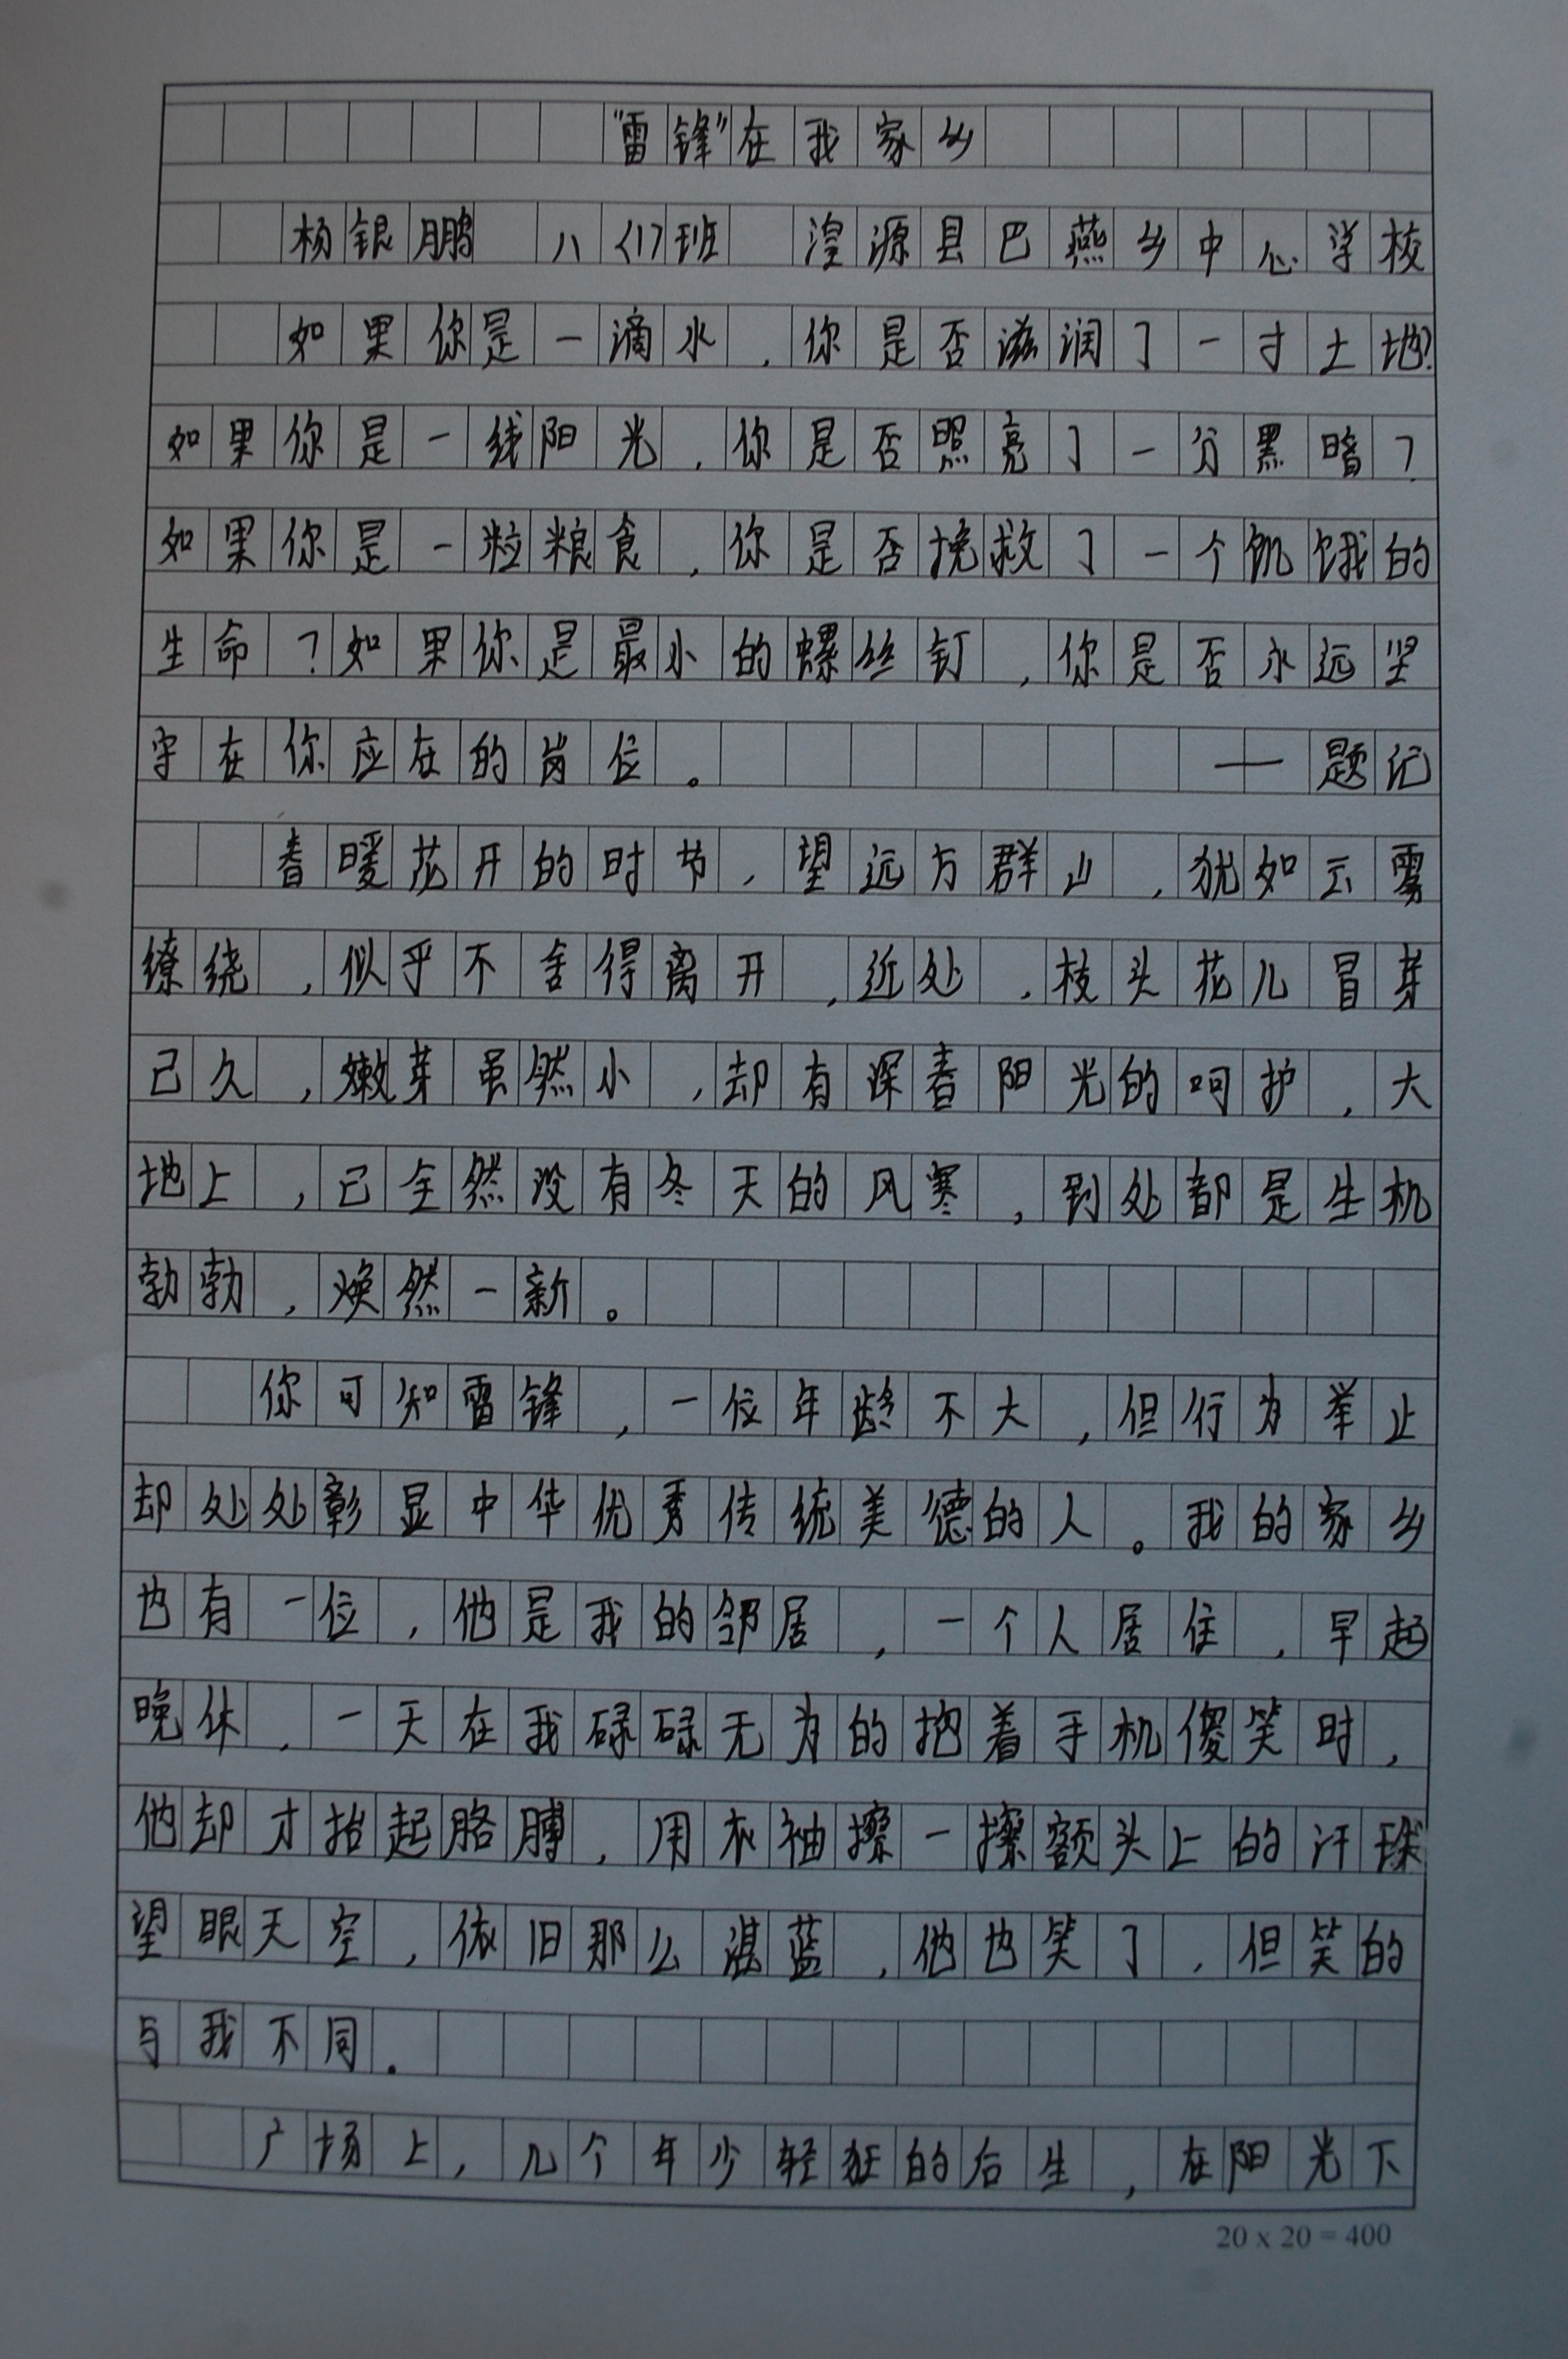 “雷锋”在我家乡
杨银鹏 八〈1〉班 湟源县巴燕乡中心学校
如果你是一滴水，你是否滋润了一寸土地？
如果你是一线阳光，你是否照亮了一分黑暗？
如果你是一粒粮食，你是否挽救了一个饥饿的
生命？如果你是最小的螺丝钉，你是否永远坚
守在你应在的岗位。 ——题记
春暖花开的时节，望远方群山，犹如云雾
缭绕，似乎不舍得离开，近处，枝头花儿冒芽
已久，嫩芽虽然小，却有深春阳光的呵护，大
地上，已全然没有冬天的风寒，到处都是生机
勃勃，焕然一新。
你可知雷锋，一位年龄不大，但行为举止
却处处彰显中华优秀传统美德的人。我的家乡
也有一位，他是我的邻居，一个人居住，早起
晚休，一天在我碌碌无为的抱着手机傻笑时，
他却才抬起胳膊，用衣袖擦一擦额头上的汗珠
望眼天空，依旧那么湛蓝，他也笑了，但笑的
与我不同。
广场上，几个年少轻狂的后生，在阳光下
20 x 20 = 400